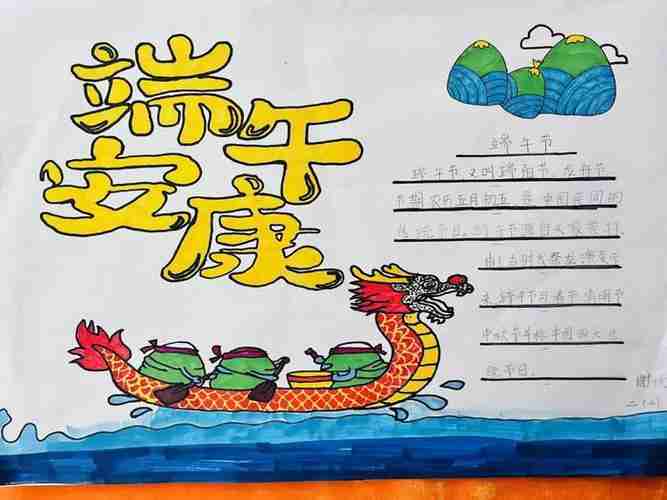 端午
安康
端午节
端午节又叫端阳节 龙舟节
节期农历五月初五 是中国民间的
传统节日。端午节源自天象崇拜,
由上古时代祭龙演变而
来端午节与春节 清明节
中秋节并称中国四大传
统节日。
谢
二(二)